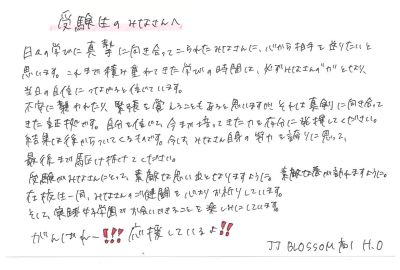 受験生のみなさんへ
日々の学びに真摯に向き合ってこられたみなさんに、心から拍手を送りたいと
思います。これまで積み重ねてきた学びの時間は、必ずみなさんの"力"となり、
当日の自信につながると信じています。
不安に襲われたり、緊張を覚えることもあると思いますが、それは真剣に向き合って
きた証拠です。自分を信じて、今まで培ってきた力を存分に発揮してください。
結果は後からついてくるものです。今は、みなさん自身の努力を誇りに思って、
最後まで駆け抜けてください。
受験がみなさんにとって、素敵な思い出となりますように。素敵な春が訪れますように。
在校生一同、みなさんのご健闘を心よりお祈りしています。
そして、実践女子学園でお会いできることを楽しみにしています。
がんばれ〜!!! 応援しているよ!!
JJ BLOSSOM 高1 H.O